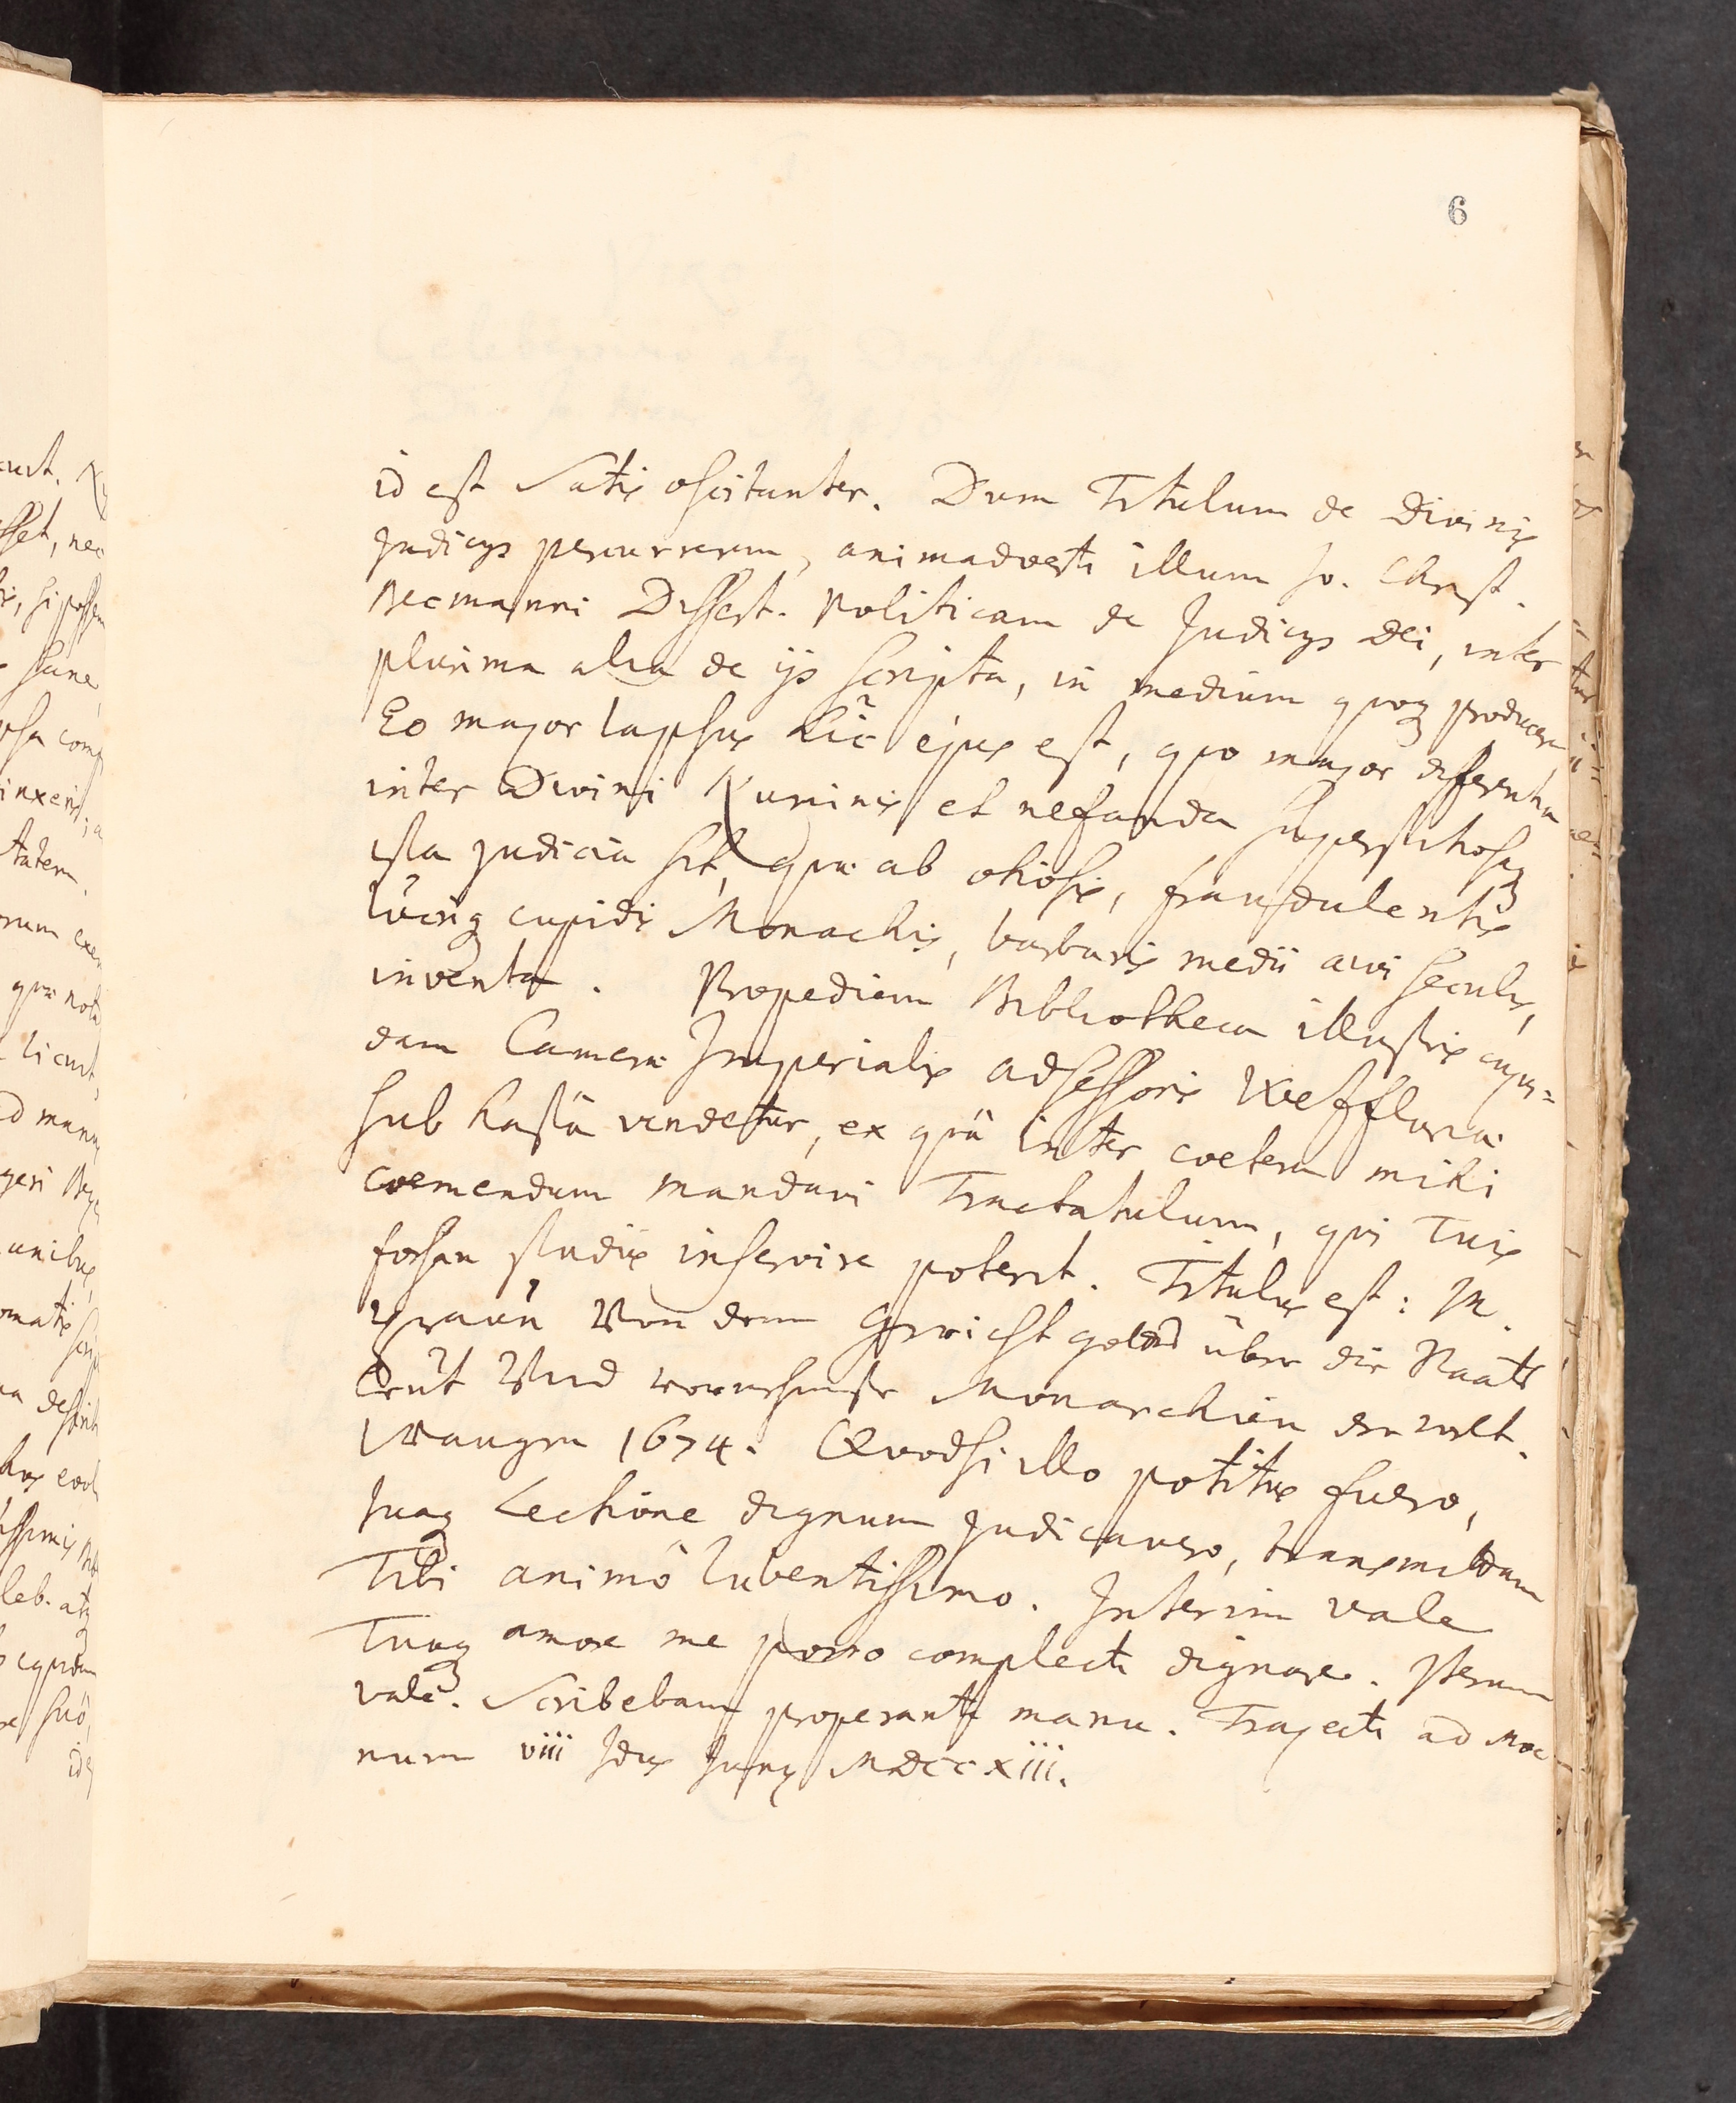 6
id est satis oscitanter. Dum Titulum de Divinis
Judicijs percurrerem, animadverti illum Jo. Christ.
Becmanni Dissert. Politicam de Judicijs Dei, inter
plurima alia de ijs scripta, in medium quoq producere,
Eo major lapsus hîc ejus est, quo major differentia
inter Divini Numinis et nefanda superstitiosaq
ista judicia sit, quæ ab otiosis, fraudulentis
lucriq cupidis Monachis, barbaris medii ævi seculis,
inventa. Propediem Bibliotheca illustris cujus=
dam Cameræ Imperialis adsessoris Wefflariæ
sub hastâ vendetur, ex quâ inter cætera mihi
coemendum mandavi Tractatulum, qui Tuis
forsan studiis inservire poterit. Titulus est: M.
Von dem Gericht gottes über die Staats
Leut Und vornehmste Monarchien der welt.
1674. Quodsi illo potitus fuero,
suaq Lectione dignum judicavero, transmittam
Tibi animô lubentissimo. Interim vale
Tuoq amore me porro complecti dignare. Iterum
vale. Scribebam properanti manu. Trajecti ad Moe-
num viii Idus Junij MDCCXIII.